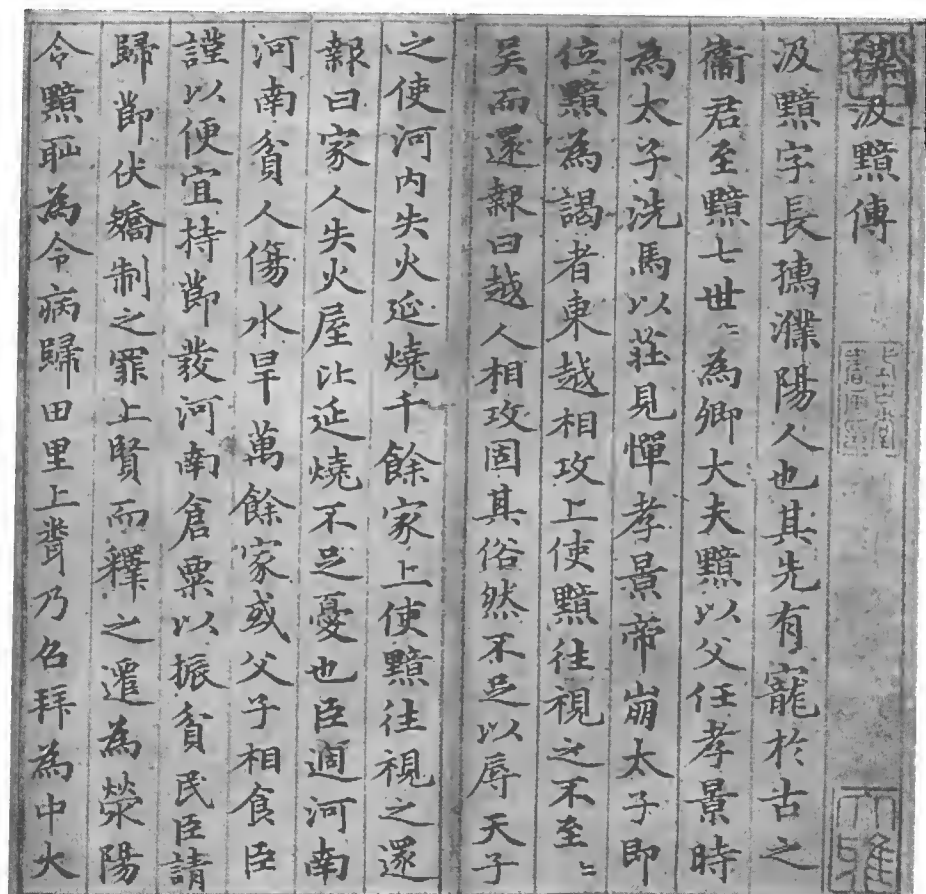 汲黯傳
汲黯字長孺濮陽人也其先有寵於古之
衛君至黯七世〻為卿大夫黯以父任孝景時
為太子洗馬以莊見憚孝景帝崩太子即
位黯為謁者東越相攻上使黯往視之不至〻
吳而還報曰越人相攻固其俗然不足以辱天子
之使河內失火延燒千餘家上使黯往視之還
報曰家人失火屋比延燒不足憂也臣過河南
河南貧人傷水旱萬餘家或父子相食臣
謹以便宜持節發河南倉粟以振貧民臣請
歸節伏矯制之罪上賢而釋之遷為滎陽
令黯恥為令病歸田里上聞乃召拜為中大